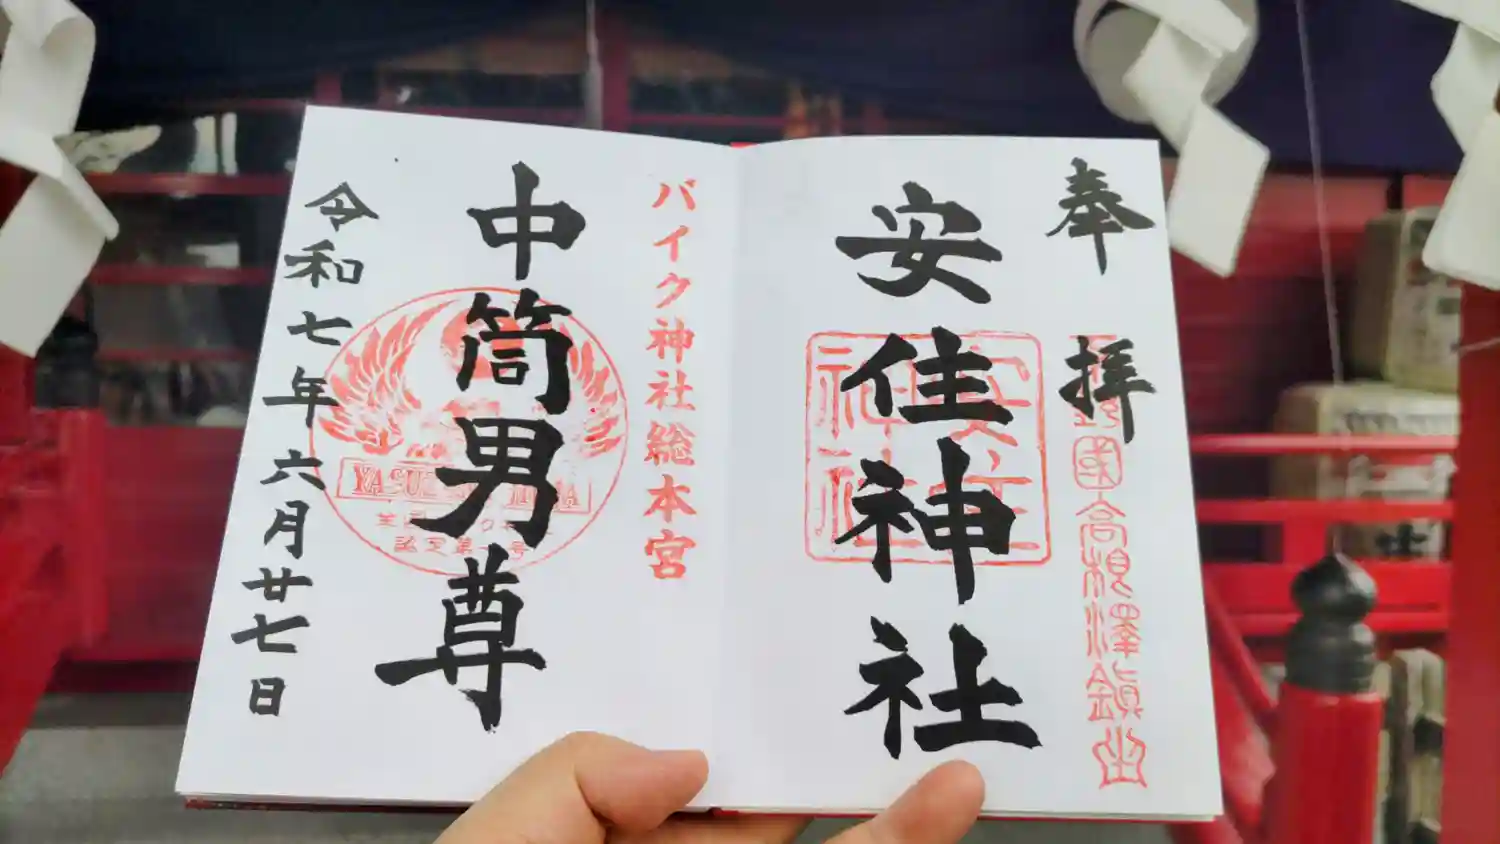 奉拝
野國高根澤鎮坐
安住神社
安住神社
バイク神社総本宮
中筒男尊
YASUZUMI JINJA
認定第一号
令和七年六月廿七日